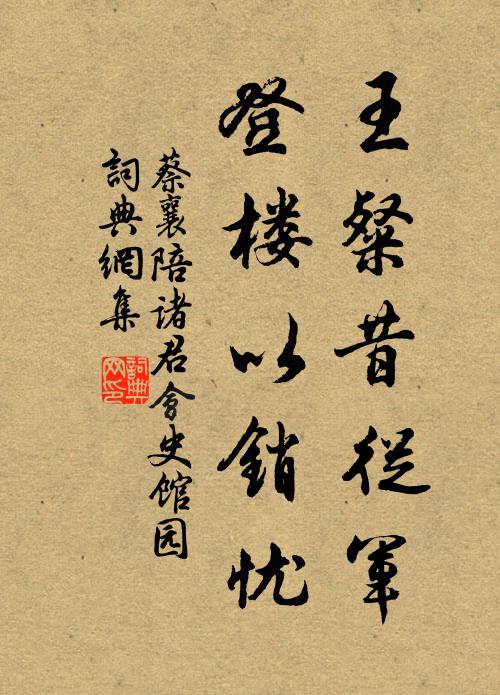 王粲昔從軍
登楼以銷忧
蔡襄陪诸君會史馆园
詞典網集
詞典网印